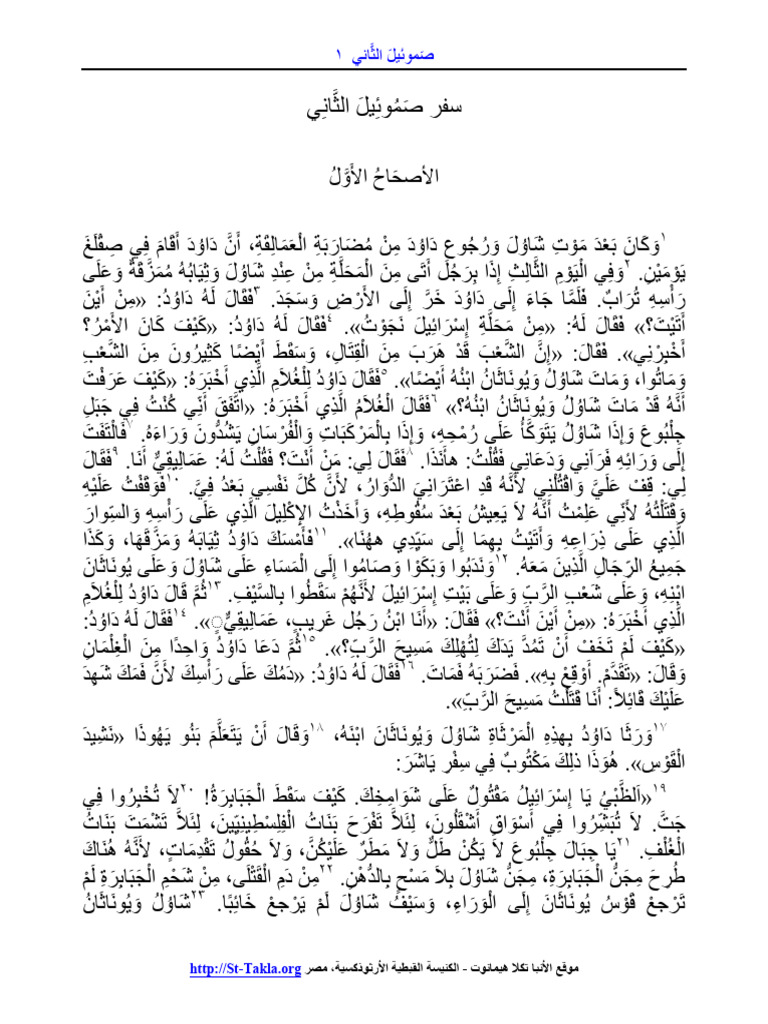 صَموئيلَ الثَّاني ١
سفر صَمُوئِيلَ الثَّانِي
الأصحَاحُ الأَوَّلُ
١وَكَانَ بَعْدَ مَوْتِ شَاوُلَ وَرُجُوعِ دَاوُدَ مِنْ مُضَارَبَةِ الْعَمَالِقَةِ، أَنَّ دَاوُدَ أَقَامَ فِي صِقْلَغَ
يَوْمَيْنِ. ٢وَفِي الْيَوْمِ الثَّالِثِ إِذَا بِرَجُل أَتَى مِنَ الْمَحَلَّةِ مِنْ عِنْدِ شَاوُلَ وَثِيَابُهُ مُمَزَّقَةٌ وَعَلَى
رَأْسِهِ تُرَابٌ. فَلَمَّا جَاءَ إِلَى دَاوُدَ خَرَّ إِلَى الأَرْضِ وَسَجَدَ. ٣فَقَالَ لَهُ دَاوُدُ: «مِنْ أَيْنَ
أَتَيْتَ؟» فَقَالَ لَهُ: «مِنْ مَحَلَّةِ إِسْرَائِيلَ نَجَوْتُ». ٤فَقَالَ لَهُ دَاوُدُ: «كَيْفَ كَانَ الأَمْرُ؟
أَخْبِرْنِي». فَقَالَ: «إِنَّ الشَّعْبَ قَدْ هَرَبَ مِنَ الْقِتَالِ، وَسَقَطَ أَيْضًا كَثِيرُونَ مِنَ الشَّعْبِ
وَمَاتُوا، وَمَاتَ شَاوُلُ وَيُونَاثَانُ ابْنُهُ أَيْضًا». ٥فَقَالَ دَاوُدُ لِلْغُلاَمِ الَّذِي أَخْبَرَهُ: «كَيْفَ عَرَفْتَ
أَنَّهُ قَدْ مَاتَ شَاوُلُ وَيُونَاثَانُ ابْنُهُ؟» ٦فَقَالَ الْغُلاَمُ الَّذِي أَخْبَرَهُ: «اتَّفَقَ أَنِّي كُنْتُ فِي جَبَلِ
جِلْبُوعَ وَإِذَا شَاوُلُ يَتَوَكَّأُ عَلَى رُمْحِهِ، وَإِذَا بِالْمَرْكَبَاتِ وَالْفُرْسَانِ يَشُدُّونَ وَرَاءَهُ. ٧فَالْتَفَتَ
إِلَى وَرَائِهِ فَرَآنِي وَدَعَانِي فَقُلْتُ: هأَنَذَا. ٨فَقَالَ لِي: مَنْ أَنْتَ؟ فَقُلْتُ لَهُ: عَمَالِيقِيٌّ أَنَا. ٩فَقَالَ
لِي: قِفْ عَلَيَّ وَاقْتُلْنِي لأَنَّهُ قَدِ اعْتَرَانِيَ الدُّوَارُ، لأَنَّ كُلَّ نَفْسِي بَعْدُ فِيَّ. ١٠فَوَقَفْتُ عَلَيْهِ
وَقَتَلْتُهُ لأَنِّي عَلِمْتُ أَنَّهُ لاَ يَعِيشُ بَعْدَ سُقُوطِهِ، وَأَخَذْتُ الإِكْلِيلَ الَّذِي عَلَى رَأْسِهِ وَالسِّوارَ
الَّذِي عَلَى ذِرَاعِهِ وَأَتَيْتُ بِهِمَا إِلَى سَيِّدِي ههُنَا». ١١فَأَمْسَكَ دَاوُدُ ثِيَابَهُ وَمَزَّقَهَا، وَكَذَا
جَمِيعُ الرِّجَالِ الَّذِينَ مَعَهُ. ١٢وَنَدَبُوا وَبَكَوْا وَصَامُوا إِلَى الْمَسَاءِ عَلَى شَاوُلَ وَعَلَى يُونَاثَانَ
ابْنِهِ، وَعَلَى شَعْبِ الرَّبِّ وَعَلَى بَيْتِ إِسْرَائِيلَ لأَنَّهُمْ سَقَطُوا بِالسَّيْفِ. ١٣ثُمَّ قَالَ دَاوُدُ لِلْغُلاَمِ
الَّذِي أَخْبَرَهُ: «مِنْ أَيْنَ أَنْتَ؟» فَقَالَ: «أَنَا ابْنُ رَجُل غَرِيبٍ، عَمَالِيقِيٍّ». ١٤فَقَالَ لَهُ دَاوُدُ:
«كَيْفَ لَمْ تَخَفْ أَنْ تَمُدَّ يَدَكَ لِتُهْلِكَ مَسِيحَ الرَّبِّ؟». ١٥ثُمَّ دَعَا دَاوُدُ وَاحِدًا مِنَ الْغِلْمَانِ
وَقَالَ: «تَقَدَّمْ. أَوْقِعْ بِهِ». فَضَرَبَهُ فَمَاتَ. ١٦فَقَالَ لَهُ دَاوُدُ: «دَمُكَ عَلَى رَأْسِكَ لأَنَّ فَمَكَ شَهِدَ
عَلَيْكَ قَائِلاً: أَنَا قَتَلْتُ مَسِيحَ الرَّبِّ».
١٧وَرَثَا دَاوُدُ بِهذِهِ الْمَرْثَاةِ شَاوُلَ وَيُونَاثَانَ ابْنَهُ، ١٨وَقَالَ أَنْ يَتَعَلَّمَ بَنُو يَهُوذَا «نَشِيدَ
الْقَوْسِ». هُوَذَا ذلِكَ مَكْتُوبٌ فِي سِفْرِ يَاشَرَ:
١٩«اَلظَّبْيُ يَا إِسْرَائِيلُ مَقْتُولٌ عَلَى شَوَامِخِكَ. كَيْفَ سَقَطَ الْجَبَابِرَةُ! ٢٠لاَ تُخْبِرُوا فِي
جَتَّ. لاَ تُبَشِّرُوا فِي أَسْوَاقِ أَشْقَلُونَ، لِئَلاَّ تَفْرَحَ بَنَاتُ الْفِلِسْطِينِيِّينَ، لِئَلاَّ تَشْمَتَ بَنَاتُ
الْغُلْفِ. ٢١يَا جِبَالَ جِلْبُوعَ لاَ يَكُنْ طَلٌّ وَلاَ مَطَرٌ عَلَيْكُنَّ، وَلاَ حُقُولُ تَقْدِمَاتٍ، لأَنَّهُ هُنَاكَ
طُرِحَ مِجَنُّ الْجَبَابِرَةِ، مِجَنُّ شَاوُلَ بِلاَ مَسْحٍ بِالدُّهْنِ. ٢٢مِنْ دَمِ الْقَتْلَى، مِنْ شَحْمِ الْجَبَابِرَةِ لَمْ
تَرْجعْ قَوْسُ يُونَاثَانَ إِلَى الْوَرَاءِ، وَسَيْفُ شَاوُلَ لَمْ يَرْجعْ خَائِبًا. ٢٣شَاوُلُ وَيُونَاثَانُ
موقع الأنبا تكلا هيمانوت - الكنيسة القبطية الأرثوذكسية، مصر http://St-Takla.org